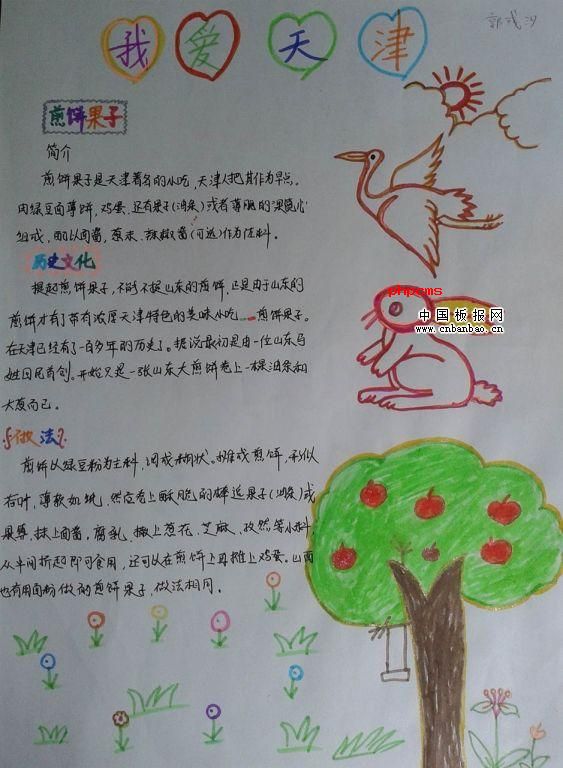 我爱天津
煎饼果子
简介
煎饼果子是天津著名的小吃，天津人把其作为早点。
由绿豆面薄饼，鸡蛋，还有果子(油条)或者薄脆的"果篦儿"
组成，配以面酱，葱末、辣椒酱(可选)作为佐料。
历史文化
提起煎饼果子，不能不提山东的煎饼，正是由于山东的
煎饼才有了带有浓厚天津特色的美味小吃——煎饼果子。
在天津已经有了一百多年的历史了。据说最初是由一位山东马
姓回民首创。开始只是一张山东大煎饼卷上一棵油条和
大葱而已。
做法
煎饼以绿豆粉为主料，调成糊状。摊成煎饼，形似
荷叶，薄软如纸，然后卷上酥脆的棒追果子(油条)或
果篦，抹上面酱，腐乳，撒上葱花、芝麻、孜然等小料，
从中间折起即可食用，还可以在煎饼上再摊上鸡蛋。山西
也有用面粉做的煎饼果子，做法相同。
phpcms
中国板报网
www.cnbanbao.cn